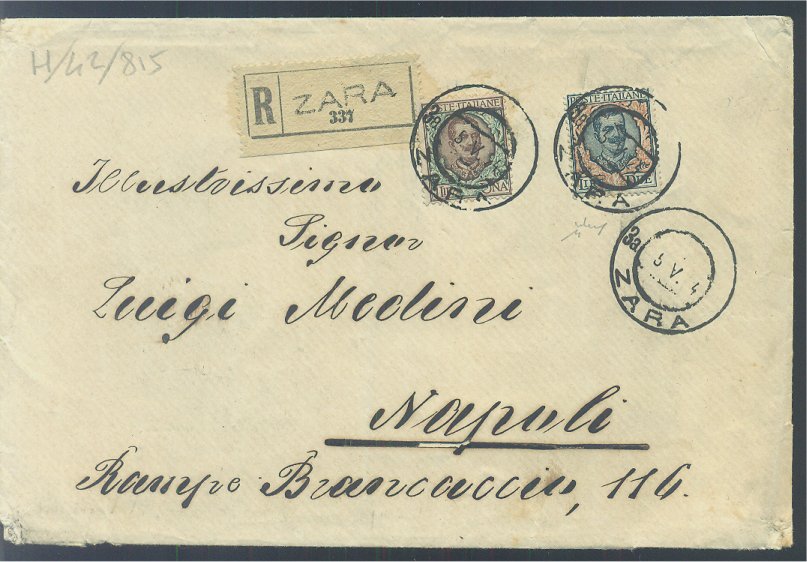 H/42/815
R ZARA
337
POSTE-ITALIANE
UNA
POSTE-ITALIANE
DUE
3a
5 V
ZARA
Illustrissimo
Signor
Luigi Medini
Napoli
Rampe Brancaccio, 116.